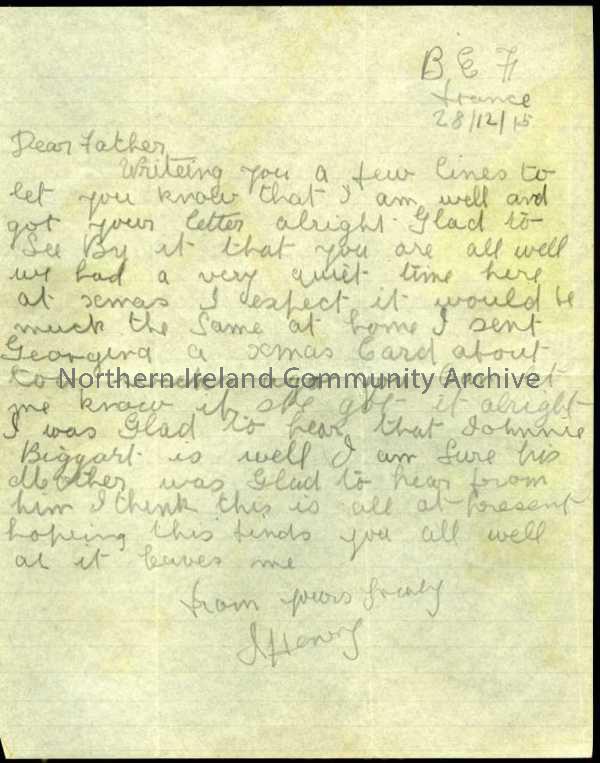 B E F
France
28/12/15
Dear Father
Writeing you a few lines to
let you know that I am well and
got your letter alright. Glad to
See By it that you are all well
we had a very quiet time here
at xmas I expect it would be
much the Same at home I sent
Georgina a xmas Card about
Northern Ireland Community Archive
me know if she got it alright
I was Glad to hear that Johnnie
Biggart is well I am Sure his
Mother was Glad to hear from
him I think this is all at Present
hoping this finds you all well
as it leaves me
from yours truly
J Henry